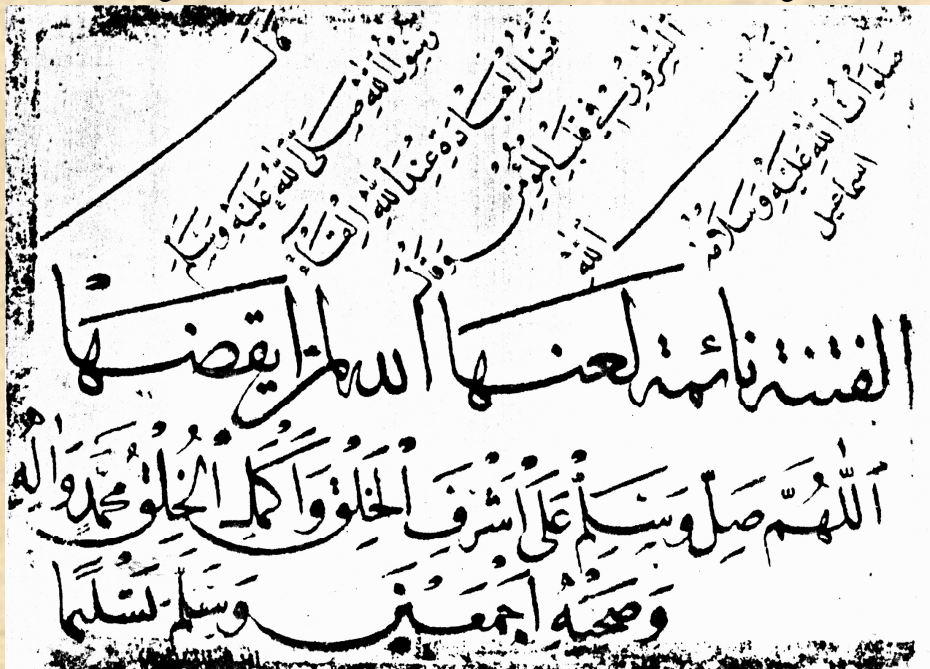 قال
رَسُولُ اللّٰهِ صَلَّى اللّٰهُ عَلَيْهِ وَسَلَّمَ
افضلُ العِبَادَةِ عِنْدَ اللّٰهِ اِلْقَاءُ
السُّرُورِ فِي قَلْبِ الْمُؤْمِنِ وَقَالَ
رَسُولُ اللّٰهِ
صَلَوَاتُ اللّٰهِ عَلَيْهِ وَسَلَامُهُ
اسماعيل
الفتنة نائمة لعنها الله لمن ايقضها
اَللّٰهُمَّ صَلِّ وَسَلِّمْ عَلَى اَشْرَفِ الْخَلْقِ وَاَكْمَلِ الْخَلْقِ مُحَمَّدٍ وَاٰلِهِ
وَصَحْبِهِ اَجْمَعِيْنَ وَسَلِّمْ تَسْلِيْمًا